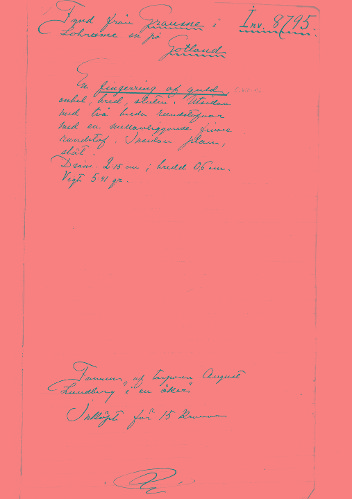 Fynd från Prausne i Inv. 8795.
Lokrume sn på
Gotland.
En fingerring af guld,
enkel, bred, sluten. Utsidan
med två breda randstafvar
med en mellanliggande
randstaf. Insidan plan,
slät.
Diam. 2,15 cm; bredd 0,5 cm.
Vigt 5,41 gr.
Funnen af August
Lundberg i en åker.
Inköpt för 15 Kronor